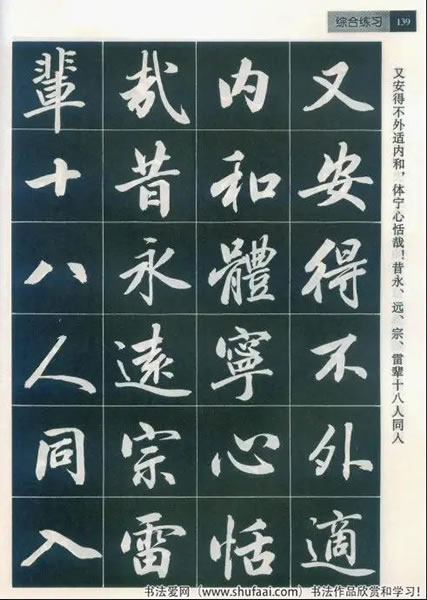 综合练习 139
又安得不外適
内和體寧心恬
哉昔永遠宗雷
輩十八人同入
又安得不外适内和，体宁心恬哉！昔永、远、宗、雷辈十八人同入
书法爱网（www.shufaai.com）书法作品欣赏和学习！